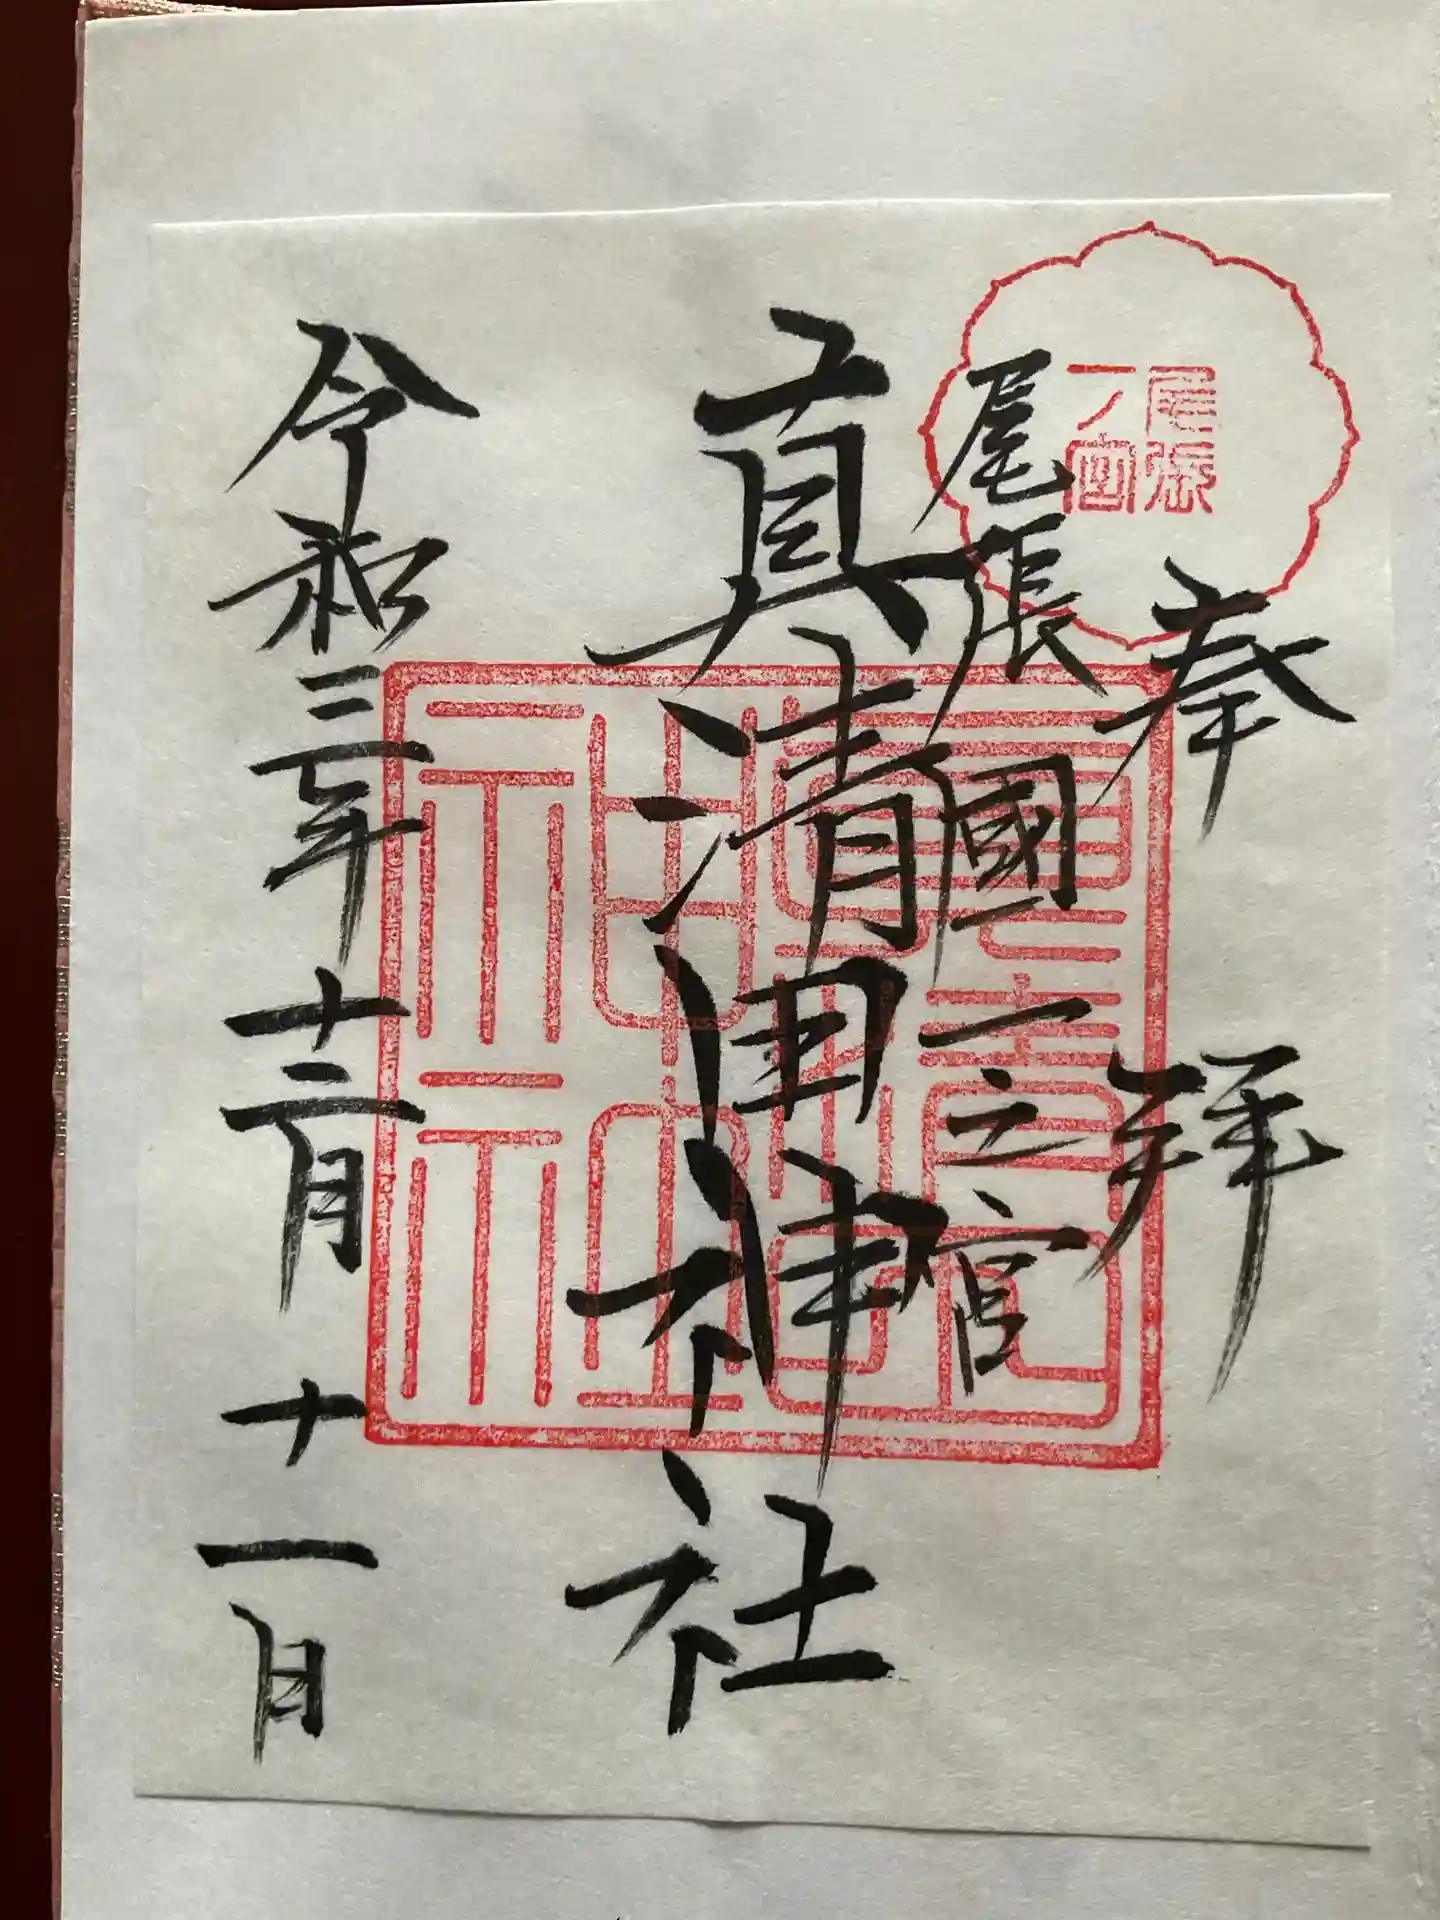 奉拝
尾張一ノ宮
尾張國一之宮
真清田神社
令和三年十二月十一日
真清田神社